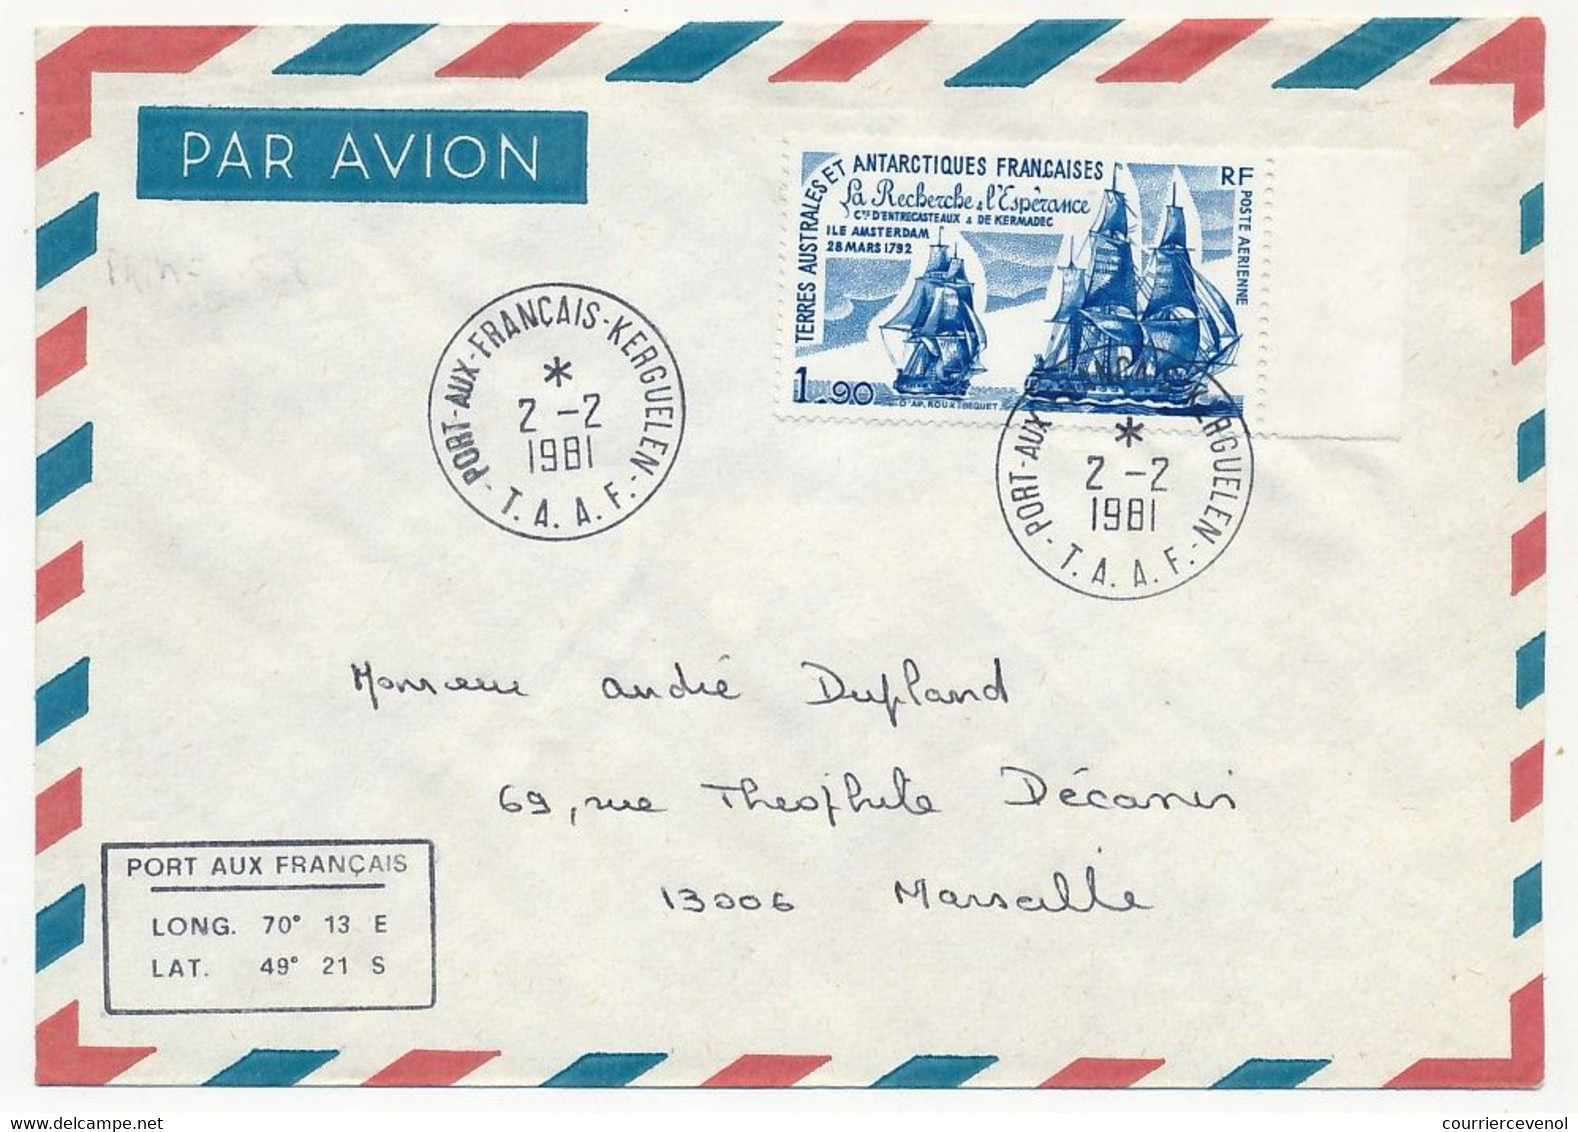 PAR AVION
TERRES AUSTRALES ET ANTARCTIQUES FRANÇAISES
RF
POSTE AERIENNE
La Recherche & l'Espérance
Cts D'ENTRECASTEAUX & DE KERMADEC
ILE AMSTERDAM
28 MARS 1792
1,90
D'AP. ROUX BEQUET
PORT-AUX-FRANÇAIS-KERGUELEN
*
2 -2
1981
- T. A. A. F. -
PORT-AUX-FRANÇAIS-KERGUELEN
*
2 -2
1981
- T. A. A. F. -
Monsieur André Dupland
69, rue Théophile Décanis
13006 Marseille
PORT AUX FRANÇAIS
LONG. 70° 13 E
LAT. 49° 21 S
courriercevenol